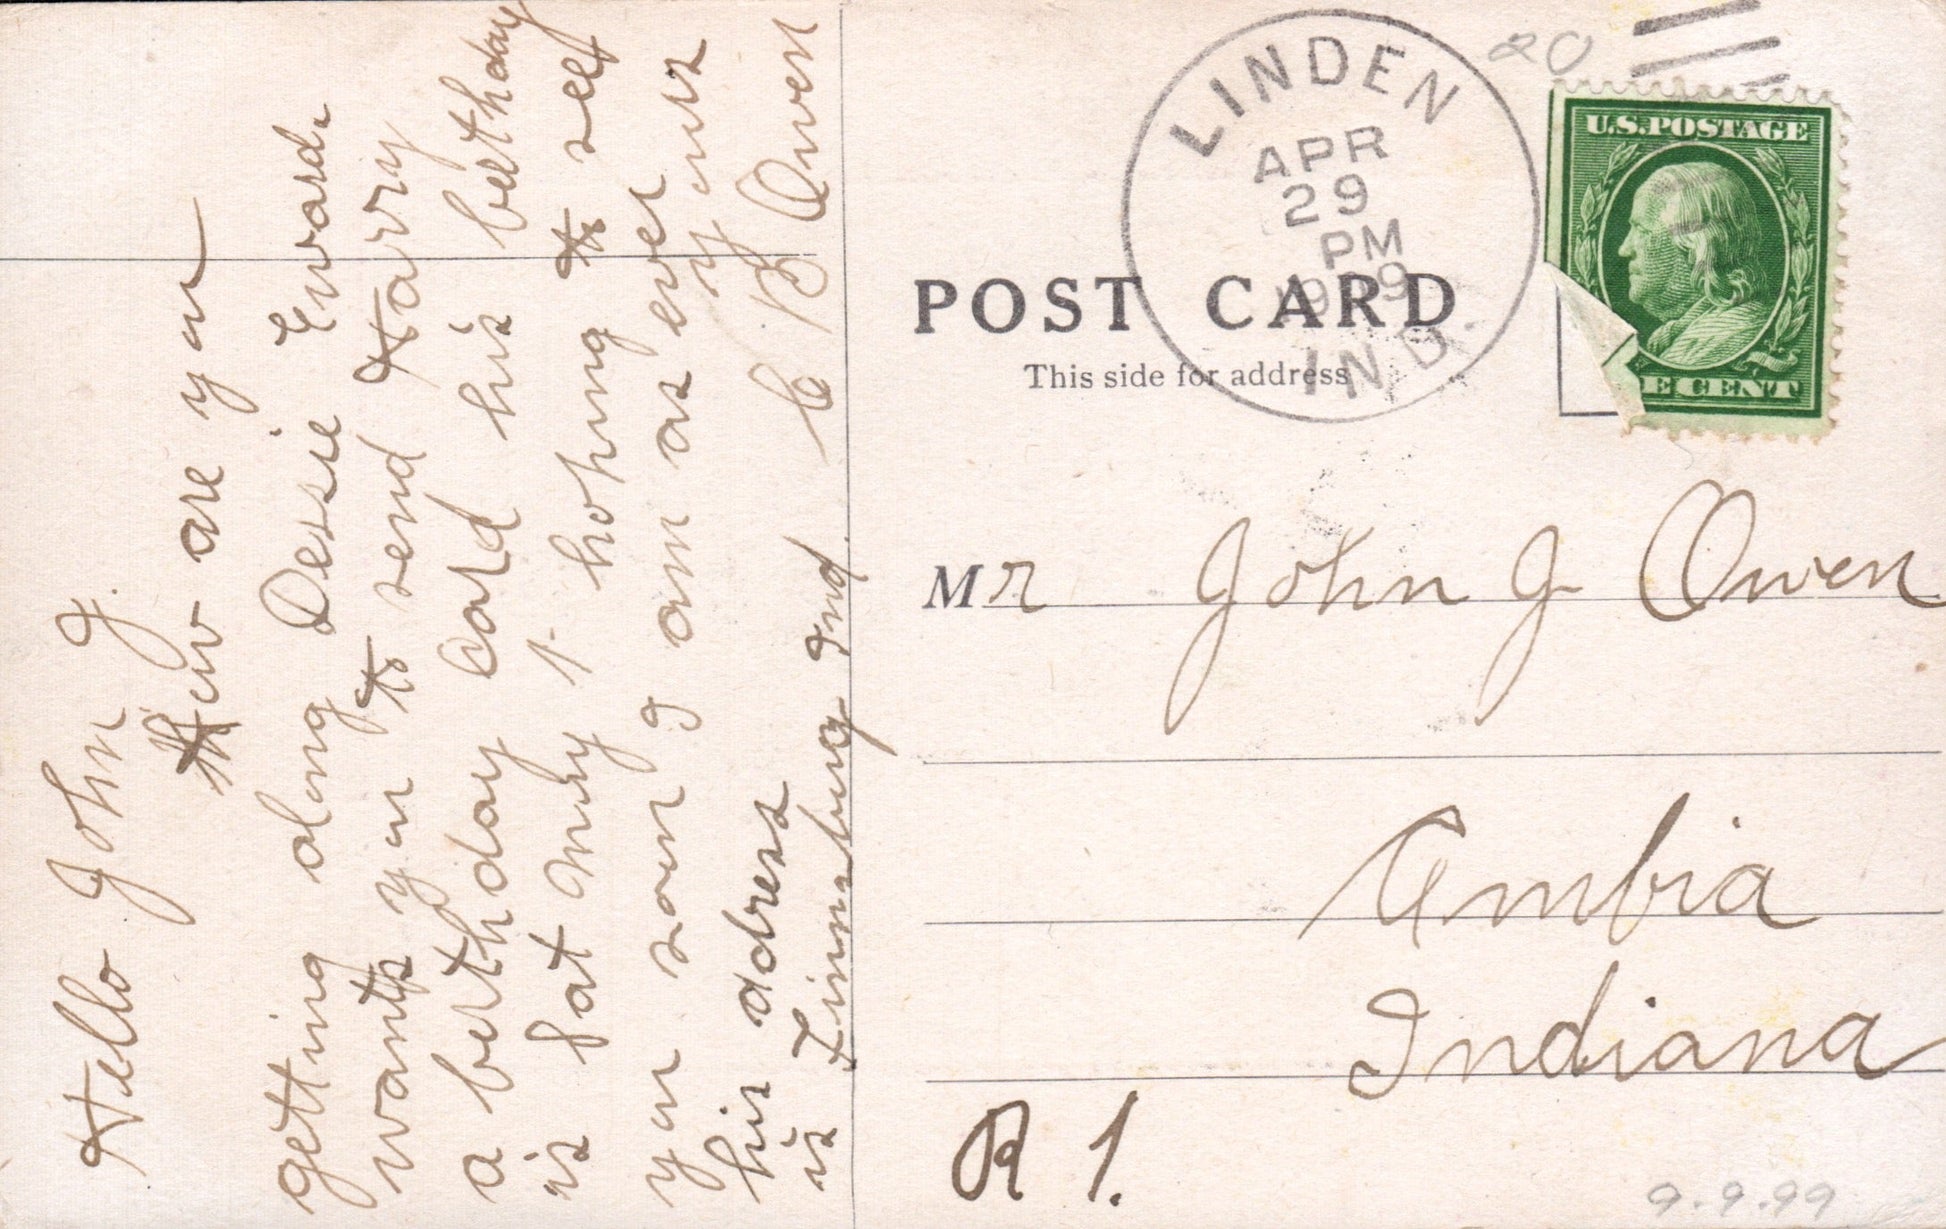 Hello John J.
How are you
getting along Dessie Eward.
wants you to send Harry
a berthday Card his berthday
is Sat May 1. hoping to see
you soon I am as ever yours
his adress C B Owen
is Linnsburg Ind.
20
LINDEN
APR
29
PM
1909
IND.
U.S.POSTAGE
E CENT
POST CARD
This side for address
Mr John J Owen
Ambia
Indiana
R 1.
9.9.99